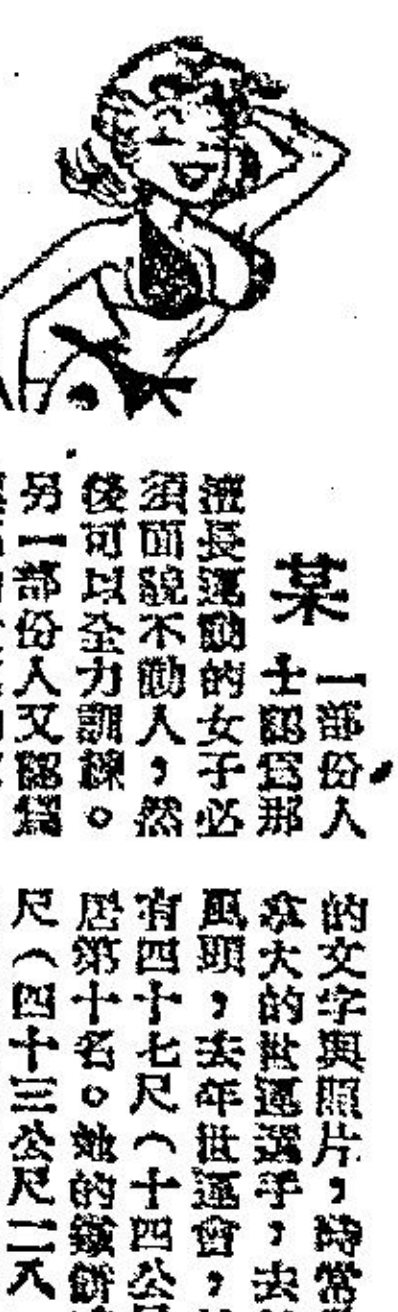 某
一部份人
士認爲那
擅長運動的女子必
須面貌不動人，然
後可以全力訓練。
另一部份人又認爲
的文字與照片，時常
拿大的世運選手，去
風頭，去年世運會，
有四十七尺（十四公
居第十名。她的鐵餅
尺（四十三公尺二八